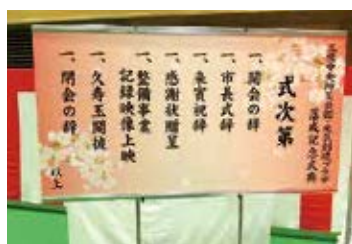 落成記念式典
式次第
一、開会の辞
一、市長式辞
一、来賓祝辞
一、感謝状贈呈
一、整備事業
記録映像上映
一、久寿玉開披
一、閉会の辞
以上